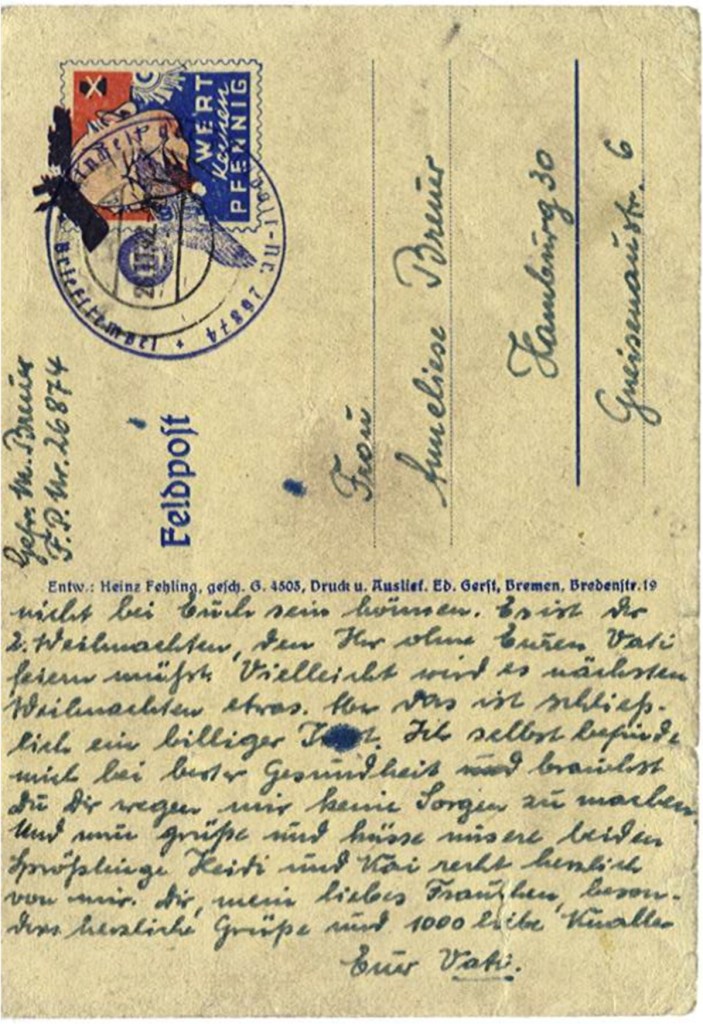 WERT
keinen
PFENNIG
Briefstempel
Nr. 26874
Gefr. M. Breuer
F. P. Nr. 26874
Feldpost
Frau
Anneliese Breuer
Hamburg 30
Gneisenaustr. 6
Entw.: Heinz Fehling, gesch. G. 4503, Druck u. Auslief. Ed. Gerst, Bremen, Bredenstr. 19
nicht bei Euch sein können. Es ist die
2. Weihnachten, den Ihr ohne Euren Vati
feiern müßt. Vielleicht wird es nächsten
Weihnachten etwas. Aber das ist schließ-
lich ein billiger Trost. Ich selbst befinde
mich bei bester Gesundheit und brauchst
Du Dir wegen mir keine Sorgen zu machen
Und nun grüße und küsse unsere beiden
Sprößlinge Heidi und Kai recht herzlich
von mir. Dir, mein liebes Frauchen, beson-
ders herzliche Grüße und 1000 liebe Knaller
Euer Vati.